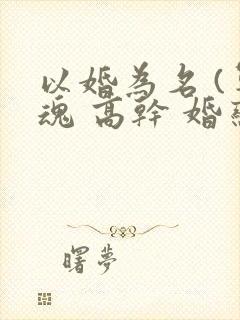 以婚為名(
魂 高幹 婚
曙夢